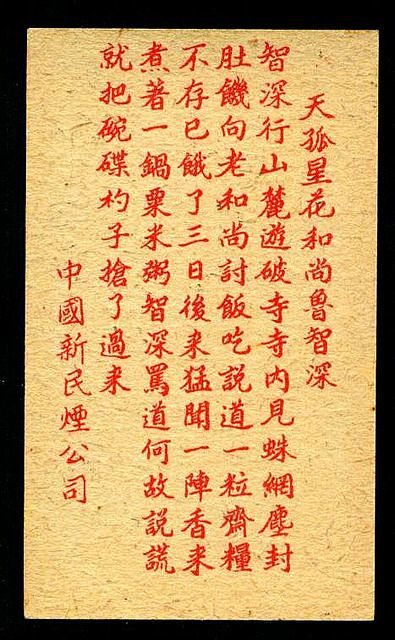 天孤星花和尚魯智深
智深行山麓遊破寺寺内見蛛網塵封
肚饑向老和尚討飯吃説道一粒齋糧
不存已餓了三日後来猛聞一陣香来
煮著一鍋粟米粥智深罵道何故説謊
就把碗碟杓子搶了過来
中國新民煙公司